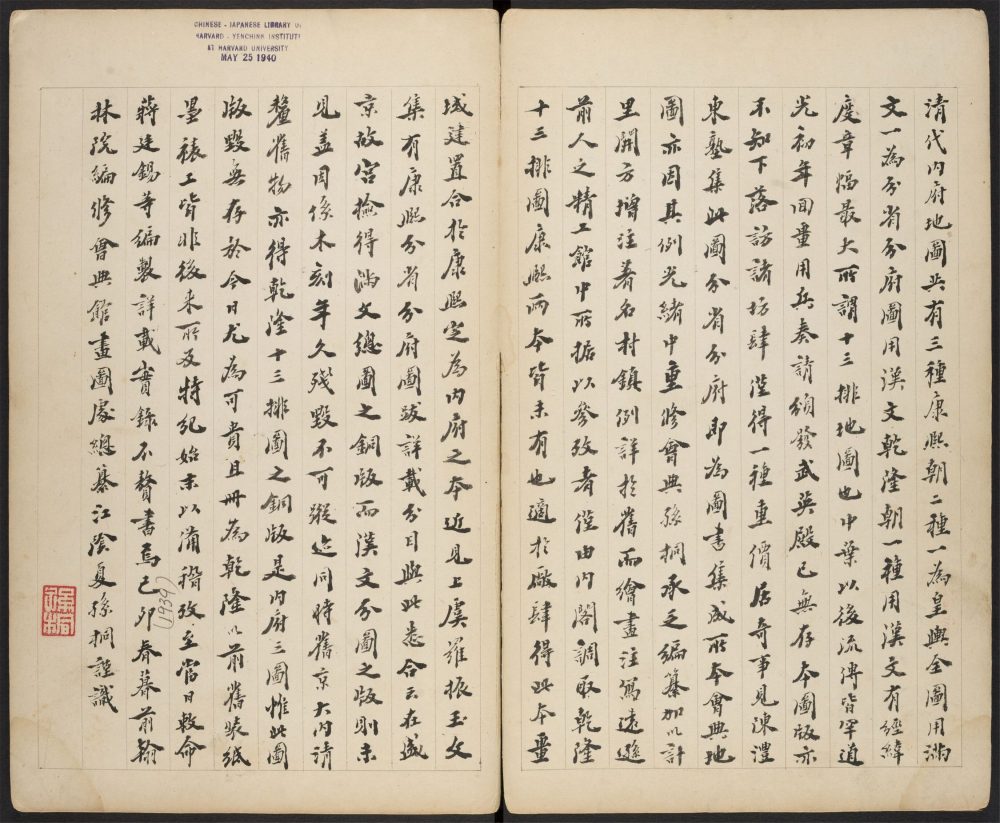 清代內府地圖共有三種康熙朝二種一為皇輿全圖用滿
文一為分省分府圖用漢文乾隆朝一種用漢文有經緯
度章幅最大所謂十三排地圖也中葉以後流傳皆罕道
光初年回疆用兵奏請頒發武英殿已無存本圖版亦
不知下落訪諸坊肆僅得一種重價居奇事見陳澧
東塾集此圖分省分府即為圖書集成所本會典地
圖亦因其例光緒中重修會典孫桐承乏編纂加以計
里開方增注著名村鎮例詳於舊而繪畫注寫遠遜
前人之精工館中所據以參攷者僅由內閣調取乾隆
十三排圖康熙兩本皆未有也適於廠肆得此本疆
域建置合於康熙定為內府之本近見上虞羅振玉文
集有康熙分省分府圖跋詳載分目與此悉合云在盛
京故宮撿得滿文總圖之銅版而漢文分圖之版則未
見蓋因係木刻年久殘毀不可蹤迹同時舊京大內清
釐舊物亦得乾隆十三排圖之銅版是內府三圖惟此圖
版毀無存於今日尤為可貴且冊為乾隆以前舊裝紙
墨裱工皆非後來所及特紀始末以備稽攷至當日敕命
蔣廷錫等編製詳載實錄不贅書焉己卯春暮前翰
林院編修會典館畫圖處總纂江陰夏孫桐謹識
(1939)
CHINESE - JAPANESE LIBRARY OF
HARVARD - YENCHING INSTITUTE
AT HARVARD UNIVERSITY
MAY 25 1940